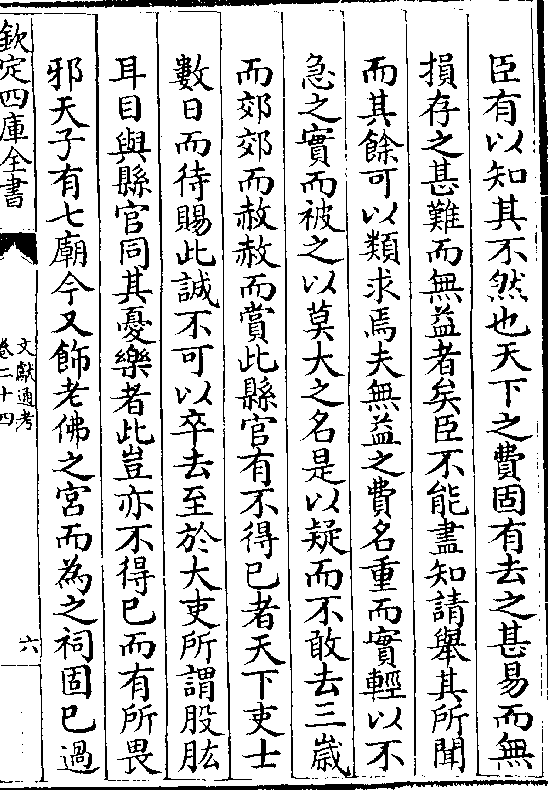 臣有以知其不然也天下之費固有去之甚易而無
損存之甚難而無益者矣臣不能盡知請舉其所聞
而其餘可以類求焉夫無益之費名重而實輕以不
急之實而被之以莫大之名是以疑而不敢去三歳
而郊郊而赦赦而賞此縣官有不得已者天下吏士
數日而待賜此誠不可以卒去至於大吏所謂股肱
耳目與縣官同其憂樂者此豈亦不得已而有所畏
邪天子有七廟今又飾老佛之宮而為之祠固已過
欽定四庫全書
文獻通考
卷二十四
六